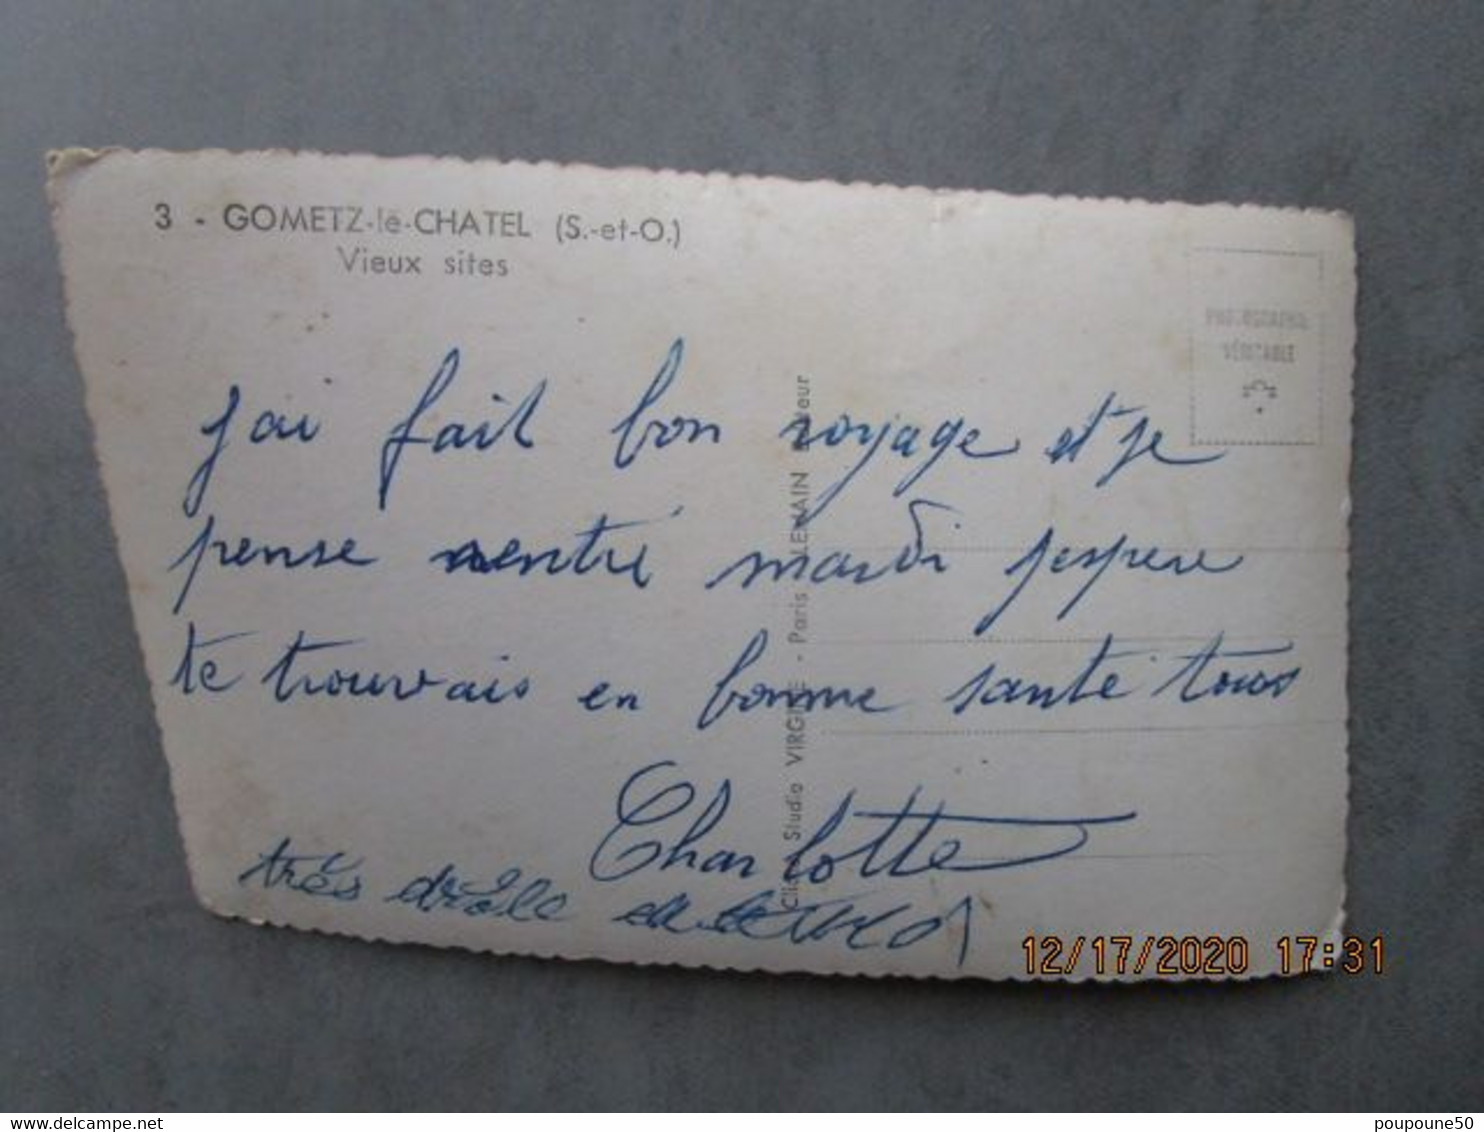 3 - GOMETZ-le-CHATEL (S.-et-O.)
Vieux sites
PHOTOGRAPHIE
VÉRITABLE
j'ai fait bon voyage et je
pense rentré mardi jespere
te trouvais en bonne santé tous
Charlotte
très drôle
Cliché Studio VIRGINE - Paris LEMAIN Editeur
12/17/2020 17:31
poupoune50